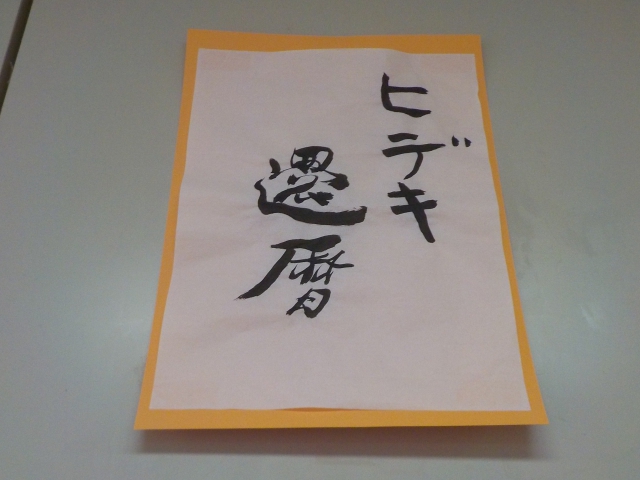 ヒデキ
還暦